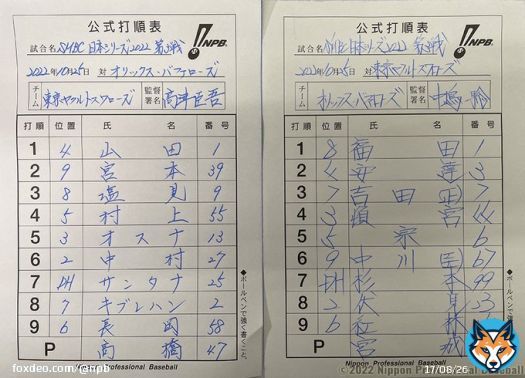 公式打順表
NPB
試合名 SMBC日本シリーズ2022 第3戦
2022年10月25日 対 オリックス・バファローズ
チーム 東京ヤクルトスワローズ 監督署名 高津臣吾
打順 位置 氏名 番号
1 4 山田 1
2 9 宮本 39
3 8 塩見 9
4 5 村上 55
5 3 オスナ 13
6 2 中村 27
7 DH サンタナ 25
8 7 キブレハン 2
9 6 長岡 58
P 高橋 47
●ボールペンで強く書くこと。
Nippon Professional Baseball
公式打順表
NPB
試合名 SMBC日本シリーズ2022 第3戦
2022年10月25日 対 東京ヤクルトスワローズ
チーム オリックス・バファローズ 監督署名 中嶋 聡
打順 位置 氏名 番号
1 8 福田 1
2 4 安達 3
3 7 吉田(正) 7
4 3 頓宮 44
5 5 宗 6
6 9 中川(圭) 67
7 DH 杉本 99
8 2 伏見 23
9 6 紅林
P 宮城
●ボールペンで強く書くこと。
Nippon Professional Baseball
©2022 Nippon Professional Baseball
foxdeo.com/@npb
17/08/26